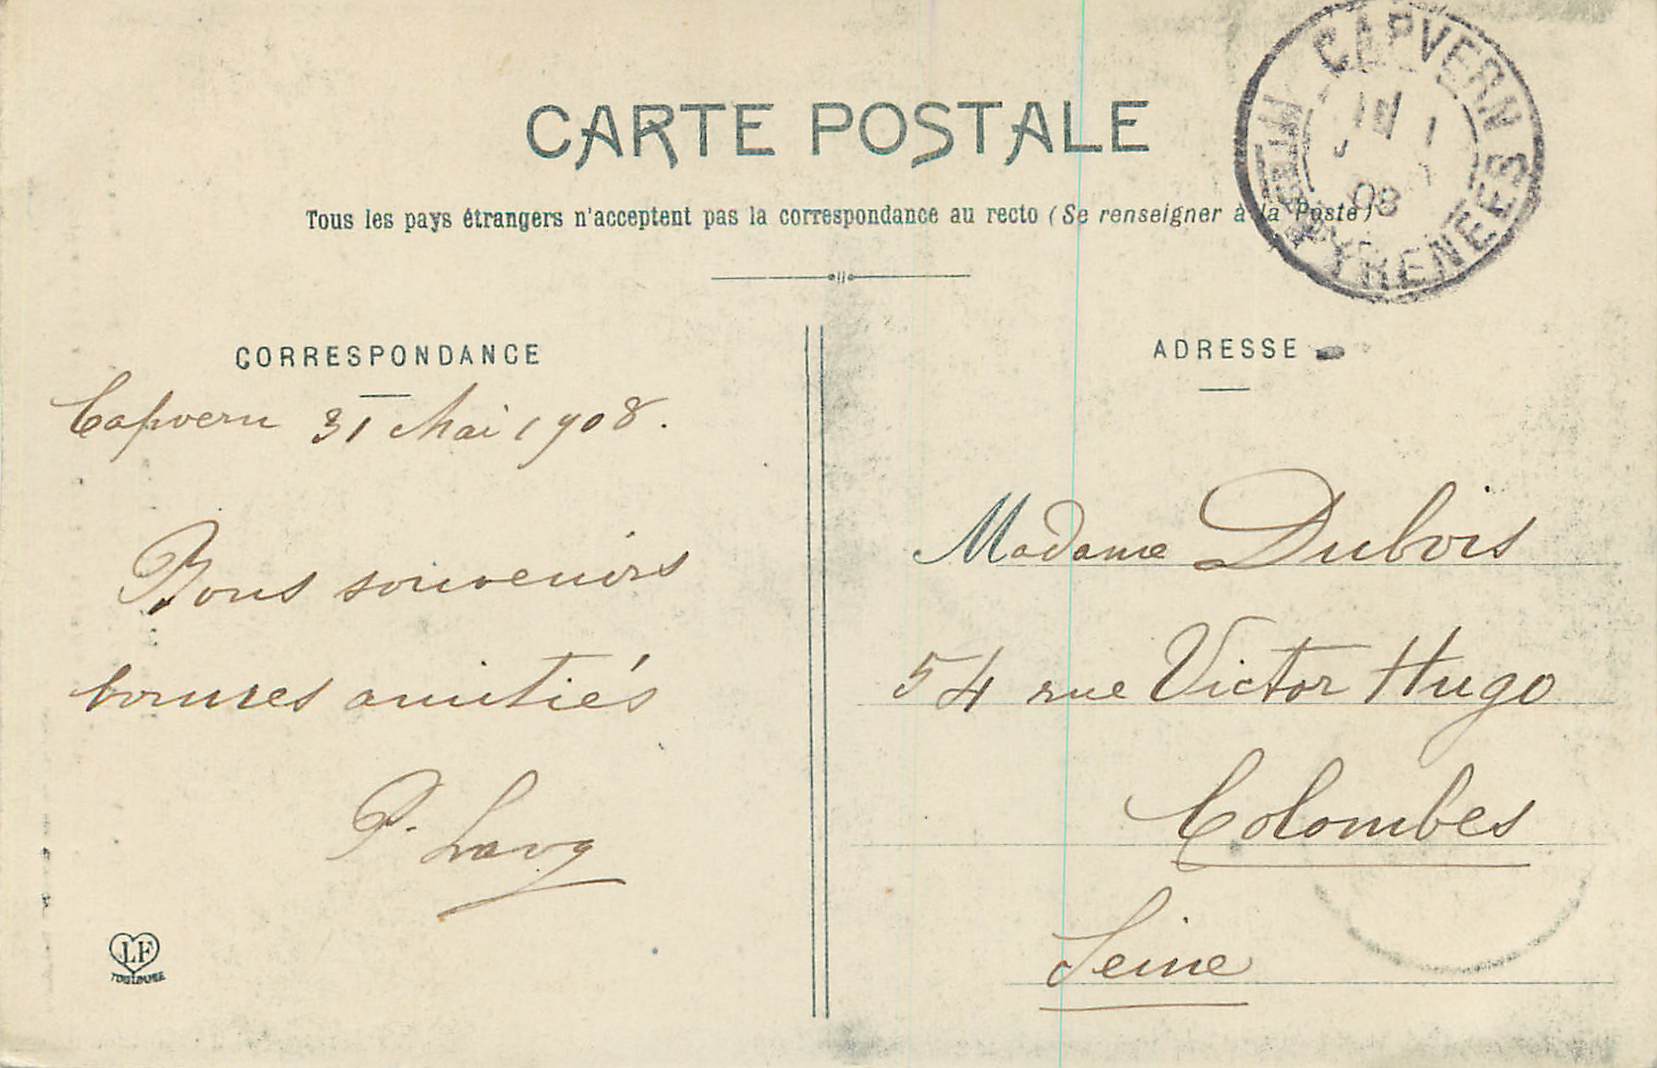 CARTE POSTALE
Tous les pays étrangers n'acceptent pas la correspondance au recto (Se renseigner à la Poste)
CAPVERN
HTES PYRENEES
08
CORRESPONDANCE
Capvern 31 Mai 1908.
Bons souvenirs
bonnes amitiés
P.
LF
TOULOUSE
ADRESSE
Madame Dubois
54 rue Victor Hugo
Colombes
Seine